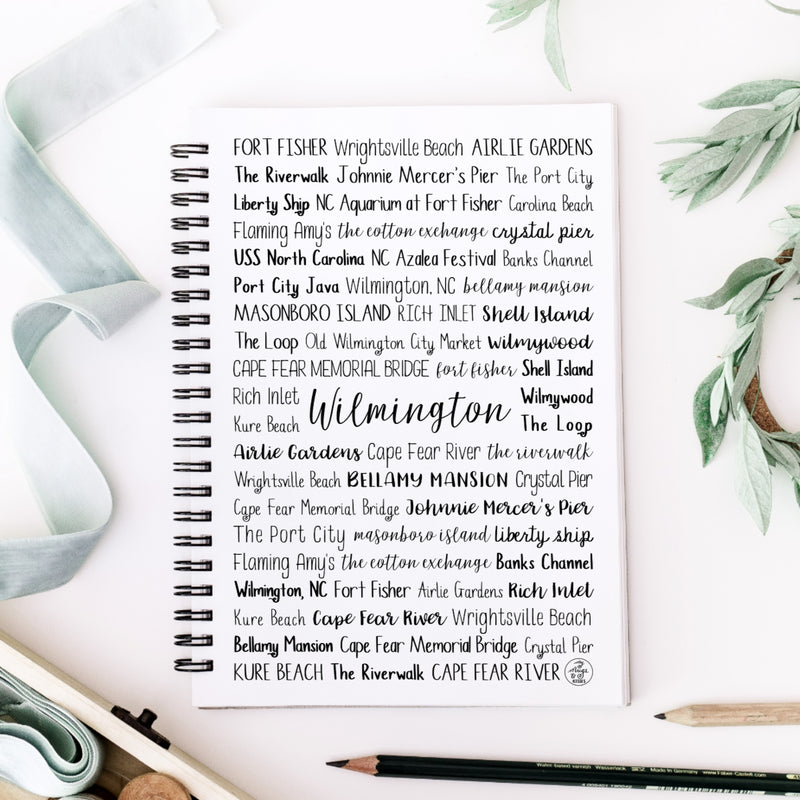 FORT FISHER Wrightsville Beach AIRLIE GARDENS
The Riverwalk Johnnie Mercer's Pier The Port City
Liberty Ship NC Aquarium at Fort Fisher Carolina Beach
Flaming Amy's the cotton exchange crystal pier
USS North Carolina NC Azalea Festival Banks Channel
Port City Java Wilmington, NC bellamy mansion
MASONBORO ISLAND RICH INLET Shell Island
The Loop Old Wilmington City Market wilmywood
CAPE FEAR MEMORIAL BRIDGE fort fisher Shell Island
Rich Inlet Wilmywood
Wilmington
Kure Beach The Loop
Airlie Gardens Cape Fear River the riverwalk
Wrightsville Beach BELLAMY MANSION Crystal Pier
Cape Fear Memorial Bridge Johnnie Mercer's Pier
The Port City masonboro island liberty ship
Flaming Amy's the cotton exchange Banks Channel
Wilmington, NC Fort Fisher Airlie Gardens Rich Inlet
Kure Beach Cape Fear River Wrightsville Beach
Bellamy Mansion Cape Fear Memorial Bridge Crystal Pier
KURE BEACH The Riverwalk CAPE FEAR RIVER
Made in Germany www.Faber-Castell.com